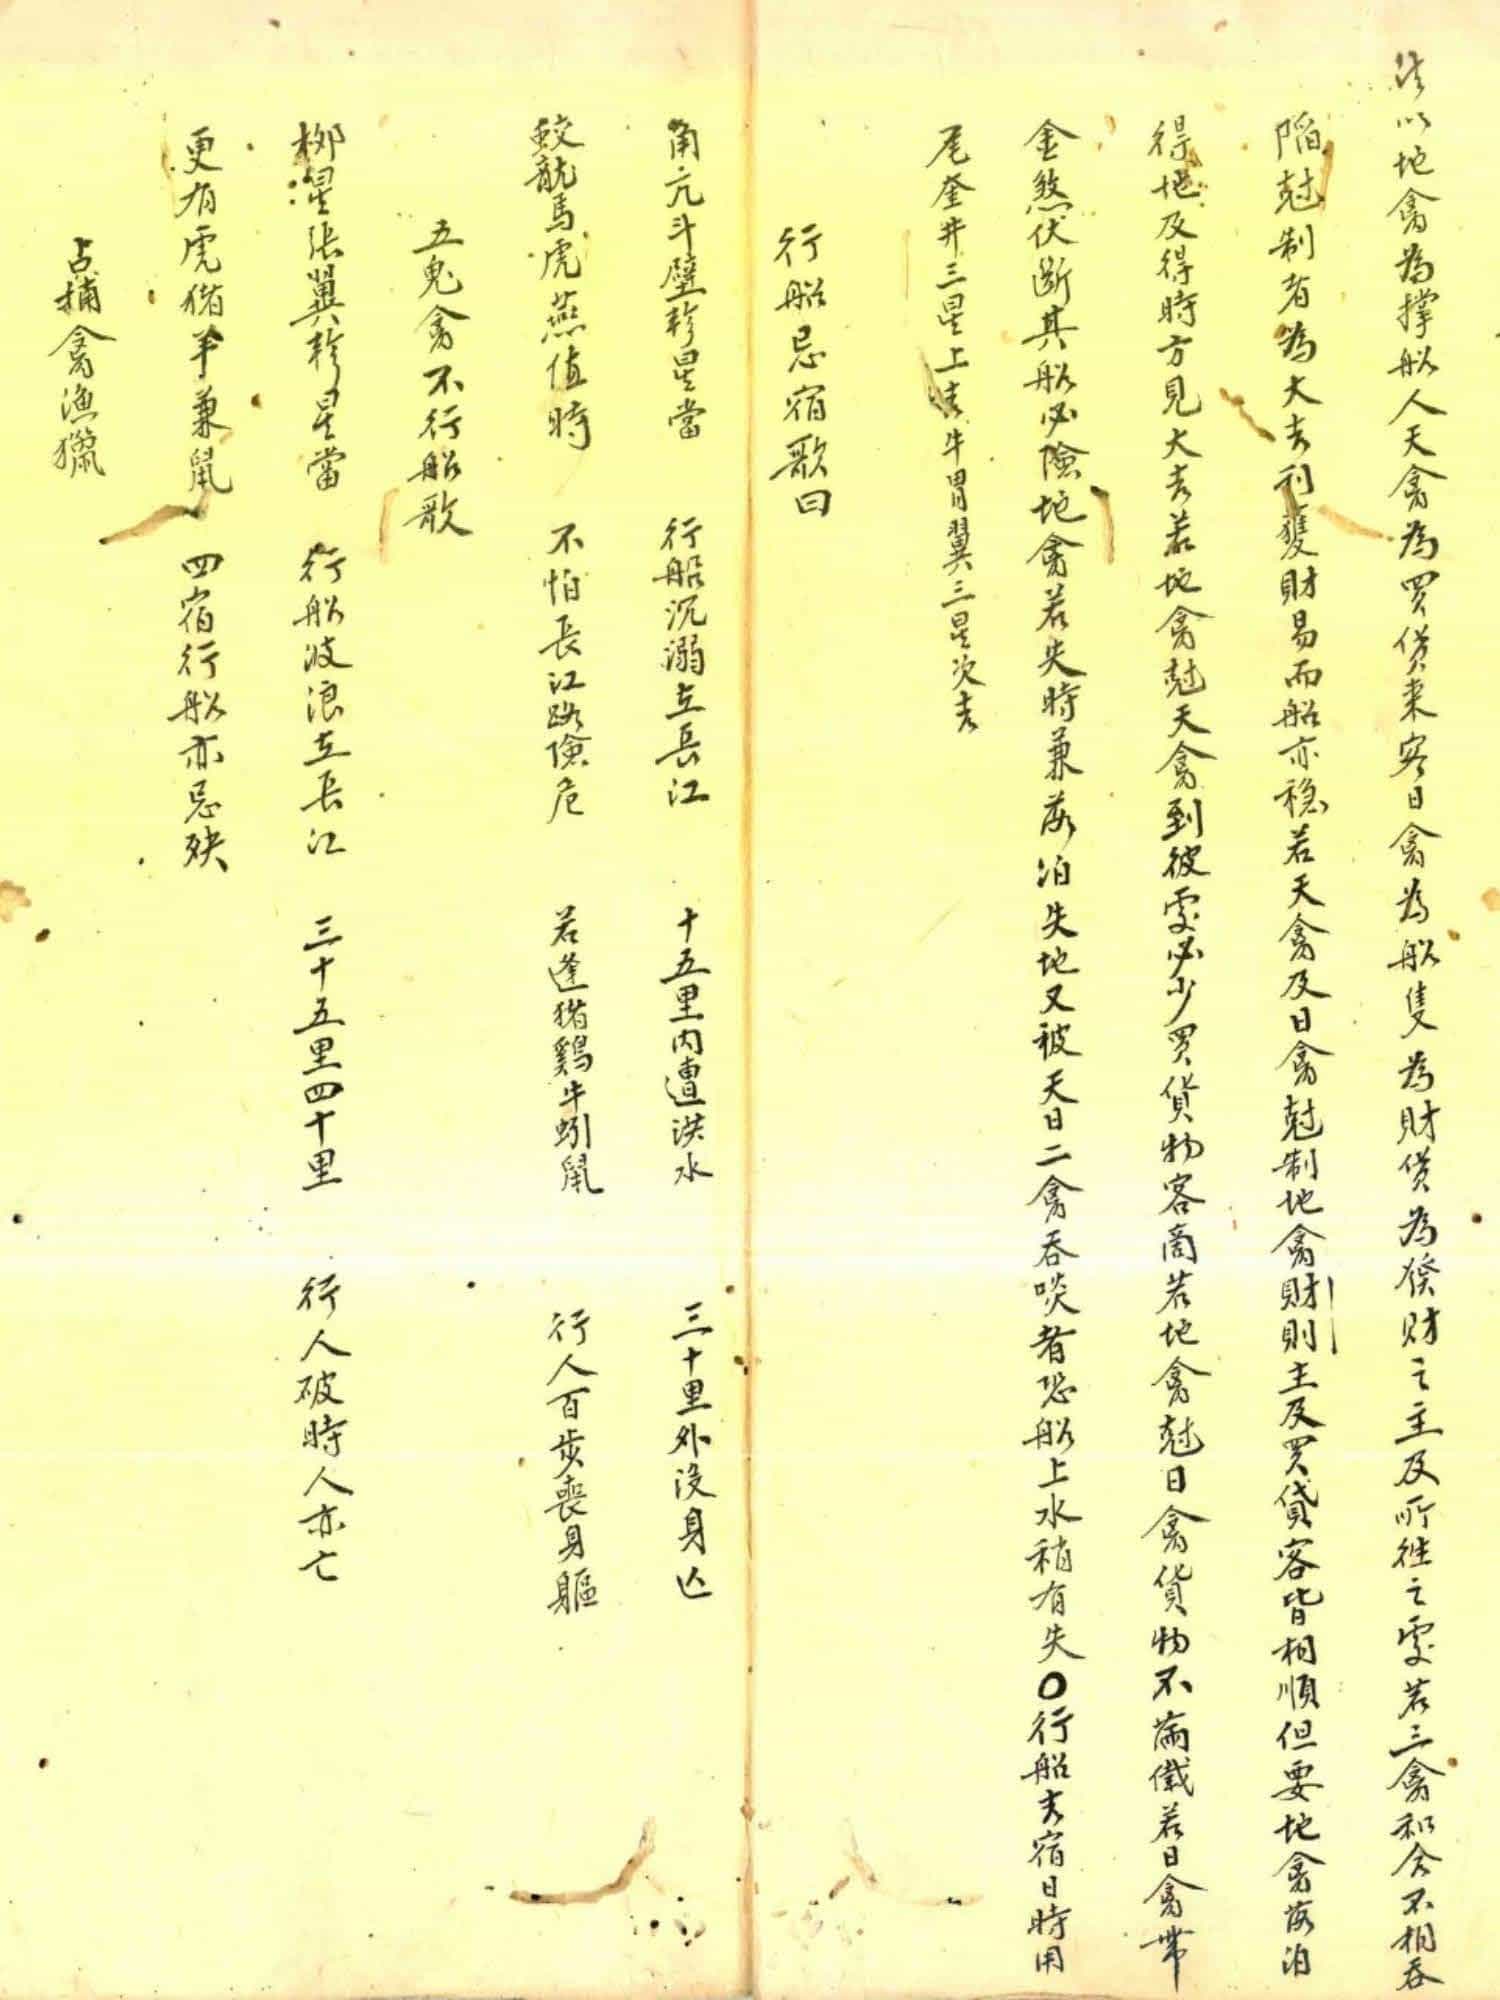 法以地禽為撑船人天禽為買貨来客日禽為船隻為財貨為發財之主及所徃之處若三禽和合不相吞
陷尅制者為大吉利獲財易而船亦穏若天禽及日禽尅制地禽財則主及買貸客皆相順但要地禽落泊
得地及得時方見大吉若地禽尅天禽到彼處必少買貨物客商若地禽尅日禽貨物不滿儎若日禽帯
金煞伏斷其船必險地禽若失時兼落泊失地又被天日二禽吞啖者恐船上水稍有失〇行船吉宿日時用
尾奎井三星上吉牛胃翼三星次吉
行船忌宿歌曰
角亢斗壁軫星當 行船沉溺在長江 十五里內遭洪水 三十里外沒身亾
蛟龍馬虎燕值時 不怕長江路險危 若逢猪鷄牛蚓鼠 行人百步喪身軀
五鬼禽不行船歌
柳星張翼軫星當 行船波浪在長江 三十五里四十里 行人破時人亦亡
更有虎猪羊兼鼠 四宿行船亦忌殃
占捕禽漁獵